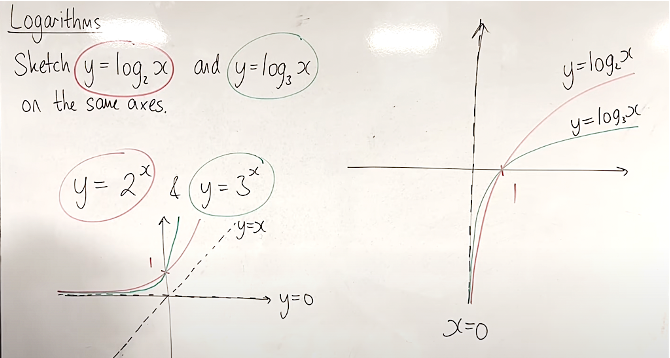 Logarithms
Sketch y = log₂ x and y = log₃ x
on the same axes.
y = 2ˣ & y = 3ˣ
1
y=x
y=0
y=log₂x
y=log₃x
1
x=0